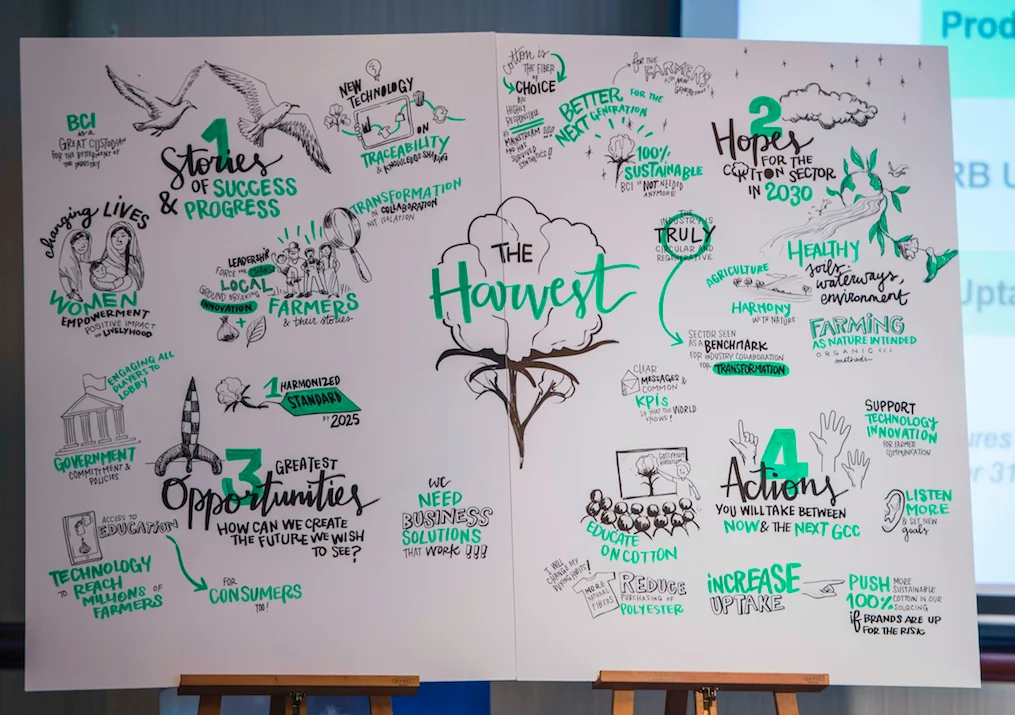 THE
Harvest
BCI
is a
GREAT CUSTODIAN
FOR THE BETTERMENT OF
THE INDUSTRY
1
Stories
OF SUCCESS
& PROGRESS
NEW
TECHNOLOGY
ON
TRACEABILITY
& KNOWLEDGE SHARING
TRANSFORMATION
IN COLLABORATION
NOT ISOLATION
changing LIVES
WOMEN
EMPOWERMENT
POSITIVE IMPACT
ON LIVELYHOOD
LEADERSHIP
FORCE FOR CHANGE
LOCAL
GROUND BREAKING
INNOVATION
+
FARMERS
& their stories
cotton is
THE FIBER
OF
CHOICE
HIGHLY
RESPONSIBLE
MAINSTREAM
AND HAS
SURVIVED
SYNTHETICS!
for the
FARMERS
BETTER
FOR THE
NEXT GENERATION
100%
SUSTAINABLE
BCI IS NOT NEEDED
ANYMORE
2
Hopes
FOR THE
COTTON SECTOR
IN 2030
THE
INDUSTRY IS
TRULY
CIRCULAR AND
REGENERATIVE
AGRICULTURE
HARMONY
WITH NATURE
HEALTHY
soils,
waterways,
environment
FARMING
AS NATURE INTENDED
ORGANIC
methods
SECTOR SEEN
AS A BENCHMARK
FOR INDUSTRY COLLABORATION
FOR TRANSFORMATION
CLEAR
MESSAGES &
COMMON
KPIs
SO THAT THE WORLD
KNOWS!
ENGAGING ALL
PLAYERS TO
LOBBY
GOVERNMENT
COMMITMENT &
POLICIES
1 HARMONIZED
STANDARD
BY 2025
3
GREATEST
Opportunities
HOW CAN WE CREATE
THE FUTURE WE WISH
TO SEE?
WE
NEED
BUSINESS
SOLUTIONS
THAT WORK !!!
ACCESS TO
EDUCATION
TECHNOLOGY
TO REACH
MILLIONS OF
FARMERS
FOR
CONSUMERS
TOO!
GOSSYPIUM
EDUCATE
ON COTTON
4
Actions
YOU WILL TAKE BETWEEN
NOW & THE NEXT GCC
SUPPORT
TECHNOLOGY
INNOVATION
FOR FARMER
COMMUNICATION
LISTEN
MORE
& SET NEW
goals
I WILL
CHANGE MY
BUYING HABITS!
MORE
NATURAL
FIBERS
REDUCE
PURCHASING OF
POLYESTER
INCREASE
UPTAKE
PUSH MORE
SUSTAINABLE
100% COTTON IN OUR
SOURCING
if BRANDS ARE UP
FOR THE RISK
Prod
RB U
Upta
ures
r 31